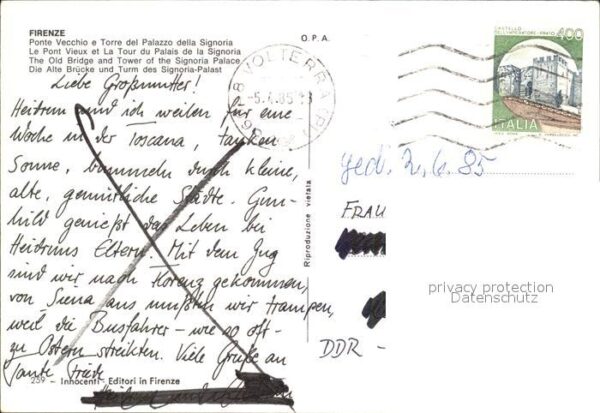 FIRENZE
Ponte Vecchio e Torre del Palazzo della Signoria
Le Pont Vieux et La Tour du Palais de la Signoria
The Old Bridge and Tower of the Signoria Palace
Die Alte Brücke und Turm des Signoria-Palast
O. P. A.
Liebe Großmutter!
Heitrun und ich weilen für eine
Woche in der Toscana, tanken
Sonne, bummeln durch kleine,
alte, gemütliche Städte. Gun-
hild genießt das Leben bei
Heitruns Eltern. Mit dem Zug
sind wir nach Florenz gekommen,
von Siena aus mußten wir trampen,
weil die Busfahrer – wie so oft –
zu Ostern streikten. Viele Grüße an
Tante Friedl
259 - Innocenti - Editori in Firenze
Riproduzione vietata
VOLTERRA (PI)
-5.4.85
CASTELLO
DELL'IMPERATORE - PRATO
400
ITALIA
ged. 2.6.85
FRAU
DDR -
privacy protection
Datenschutz